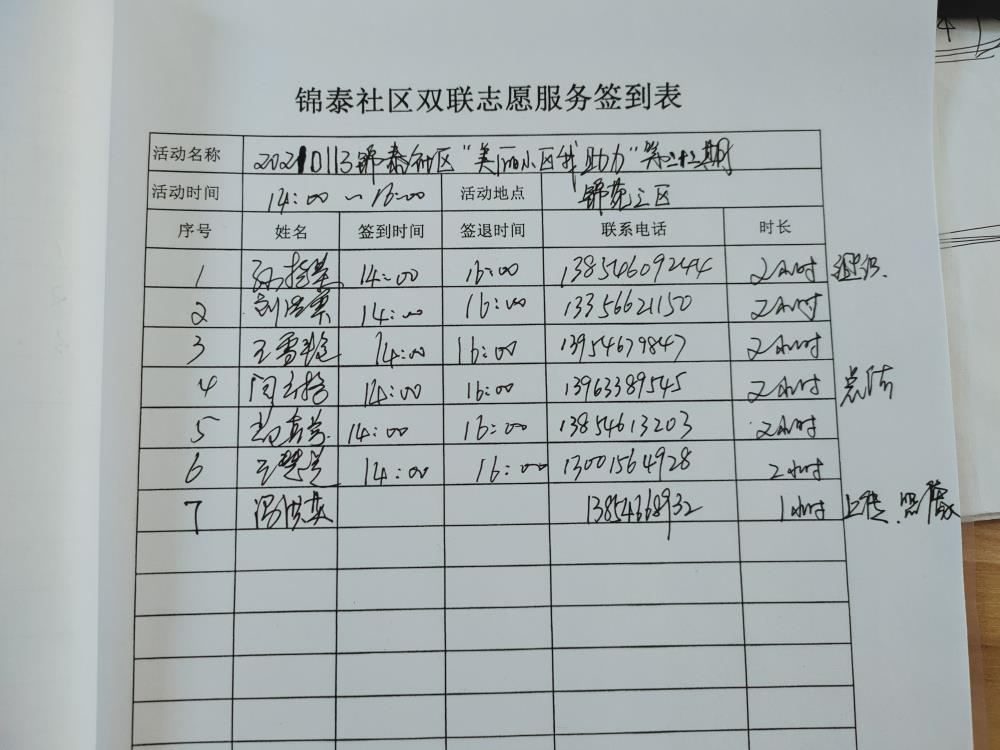 锦泰社区双联志愿服务签到表
活动名称 20210113锦泰社区“美丽小区我助力”第二十三期
活动时间 14:00—16:00 活动地点 锦苑三区
序号 姓名 签到时间 签退时间 联系电话 时长
1 14:00 16:00 13854609244 2小时 组织
2 14:00 16:00 13356621150 2小时
3 王雪艳 14:00 16:00 13954679847 2小时
4 14:00 16:00 13963389545 2小时 总结
5 14:00 16:00 13854613203 2小时
6 14:00 16:00 13001564928 2小时
7 冯洪英 13854668932 1小时 上传、照相